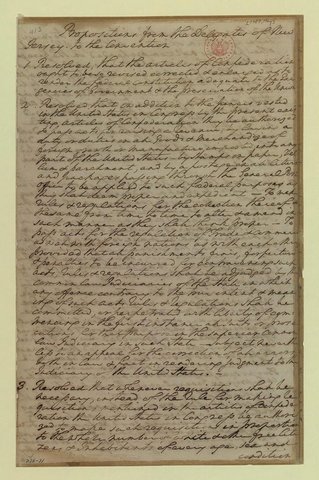 Propositions from the Delegates of New
Jersey, to the Convention
1. Resolved, that the articles of Confederation
ought to be so revised corrected & enlarged as to
render the federal constitution adequate to the Exi
gencies of Government & the preservation of the Union
2. Resolved that in addition to the powers vested
in the United States in Congress by the present exis
ting articles of Confederation, they be authorized
to pass acts for raising a Revenue by levying a
duty or duties on all goods & merchandize of
foreign growth or manufacture imported into any
part of the United States, by Stamps on paper Vel
lum or parchment, and by a postage on all letters
and packages passing through the General Post
Office, to be applied to such federal purposes as
they shall deem proper and expedient; To make
rules & regulations for the collection thereof, &
the same from time to time to alter & amend in
such manner as they shall think proper. To
pass acts for the regulation of Trade & commerce
as well with foreign nations as with each other
provided that all punishments, fines, forfeitures
& penalties to be incurred by contravening such
acts, rules & regulations shall be adjudged by the
common law Judiciaries of the State in which
any offence contrary to the true intent & meaning
of such acts, rules & regulations shall be
committed or perpetrated, with liberty of com
mencing in the first instance all suits or prose
cutions for that purpose in the Superior Common
law Judiciary in such State, Subject neverthe
less to an appeal for the correction of all errors
both in law & fact, in rendering Judgment to the
Judiciary of the United States.
3 Resolved that whenever requisitions shall be
necessary, instead of the Rule for making re
quisitions mentioned in the articles of Confede
ration the United States in Congress be authori
zed to make such requisitions in proportion
to the whole number of white & other free Citi
zens & Inhabitants of every age, sex and
condition